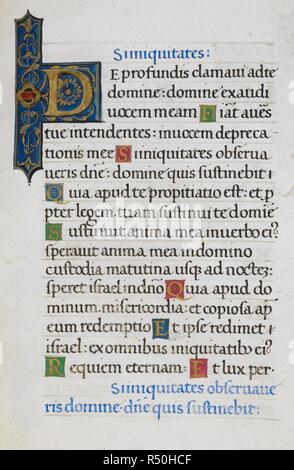 Si iniquitates:
De profundis clamaui ad te
domine: domine exaudi
uocem meam Fiat aues
tue intendentes: in uocem depreca
tionis mee Si iniquitates obserua
ueris dñe: domine quis sustinebit:
Quia apud te propitiatio est: et p
pter legem tuam sustinui te domie
Sustinuit anima mea in uerbo ei⁹
sperauit anima mea in domino
custodia matutina usq; ad noctez:
speret israel in dño Quia apud do
minum misericordia: et copiosa ap
eum redemptio Et ipse redimet
israel: ex omnibus iniquitatib⁹ ei⁹
Requiem eternam: Et lux per-
Si iniquitates obseruaue
ris domine: dñe quis sustinebit:
alamy
Image ID: R50HCF
www.alamy.com